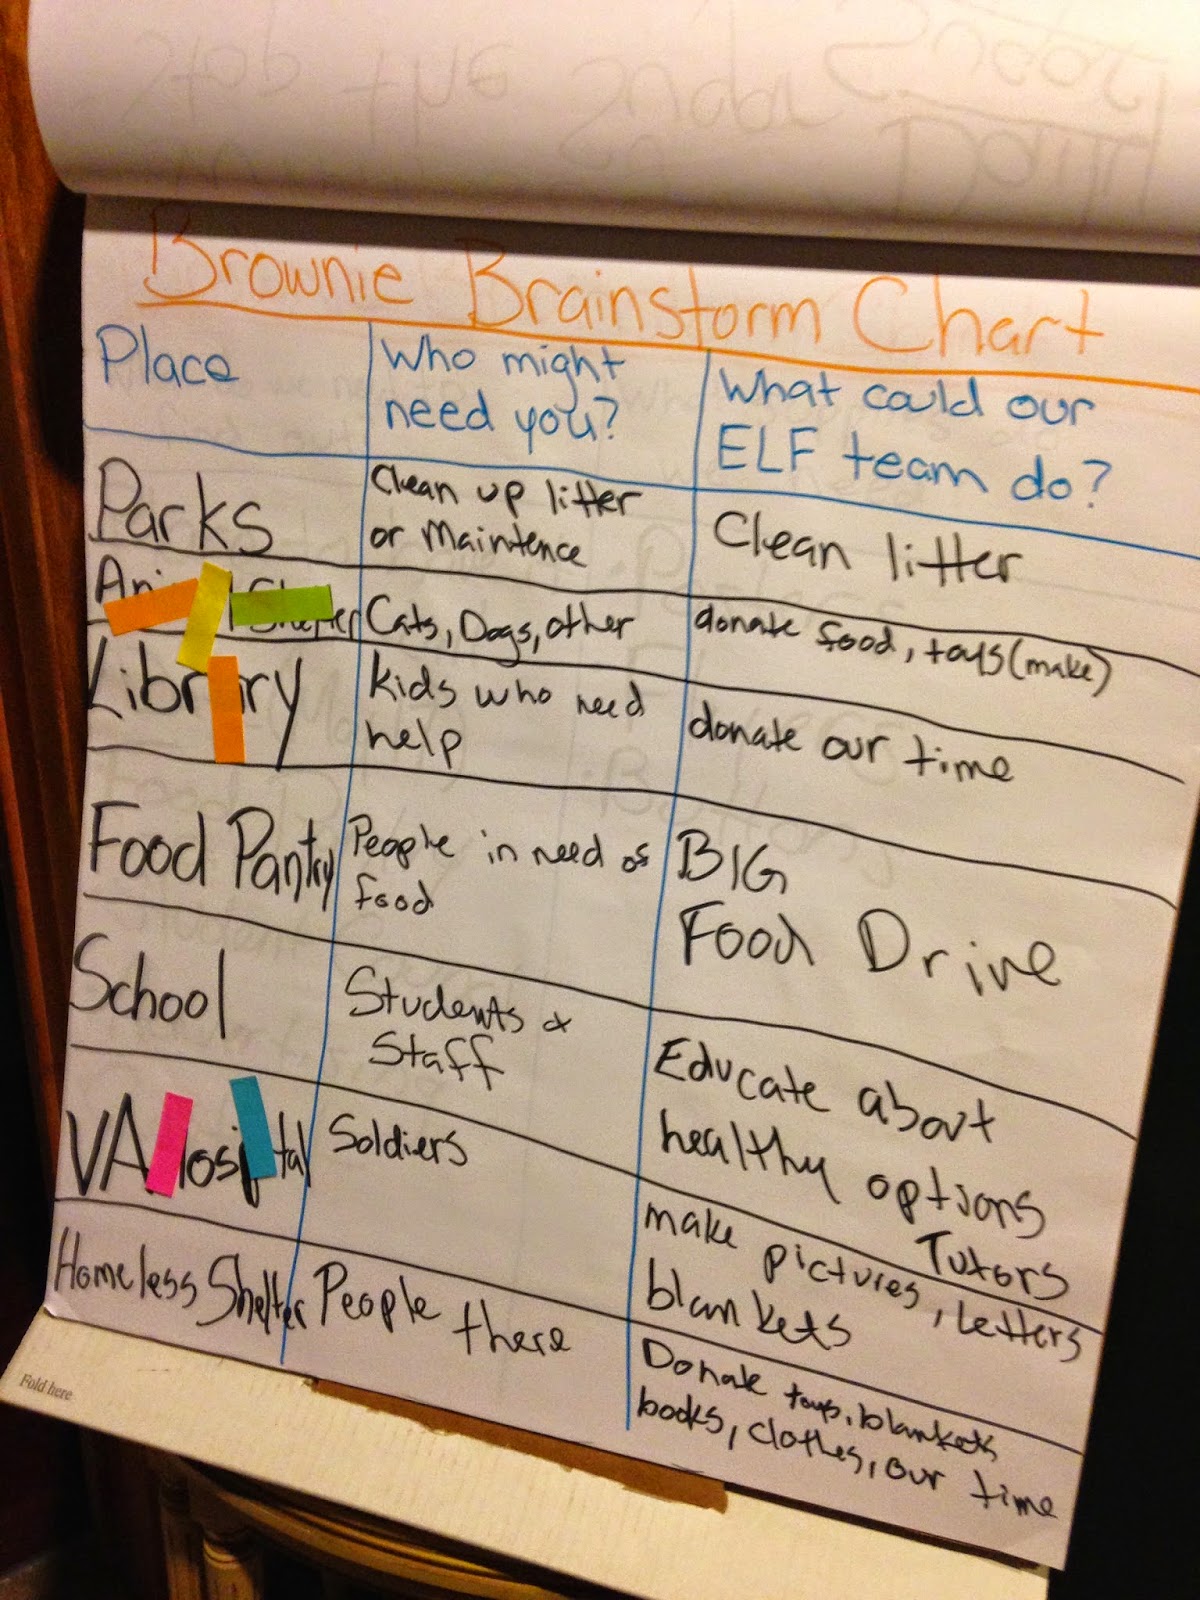 Stop the
Brownie Brainstorm Chart
Place
Who might
need you?
What could our
ELF team do?
Parks
Clean up litter
or Maintence
Clean litter
Shelter
Cats, Dogs, other
donate food, toys (make)
Library
Kids who need
help
donate our time
Food Pantry
People in need of
food
BIG
Food Drive
School
Students &
Staff
Educate about
healthy options
Tutors
VA Hospital
Soldiers
make pictures, letters
blankets
Homeless Shelter
People there
Donate toys, blankets
books, clothes, our time
Fold here